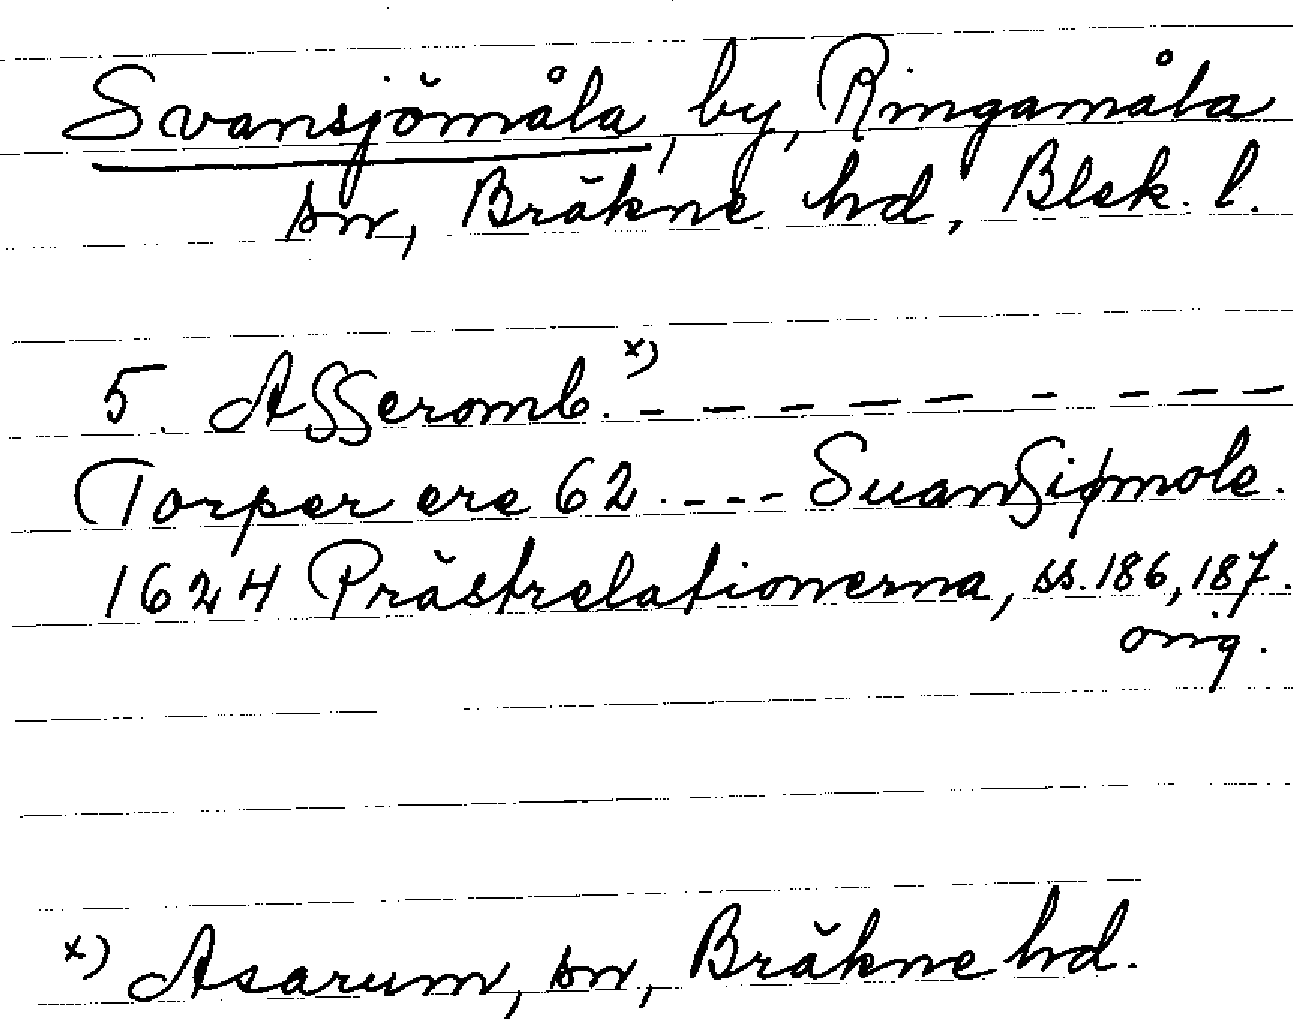 Svansjömåla, by, Ringamåla
sn, Bräkne hd, Blek. l.
5. Asseromb. x) - - - - - - - - -
Torper ere 62. - - - Suansiømole.
1624 Prästrelationerna, ss. 186, 187.
orig.
x) Asarum, sn, Bräkne hd.